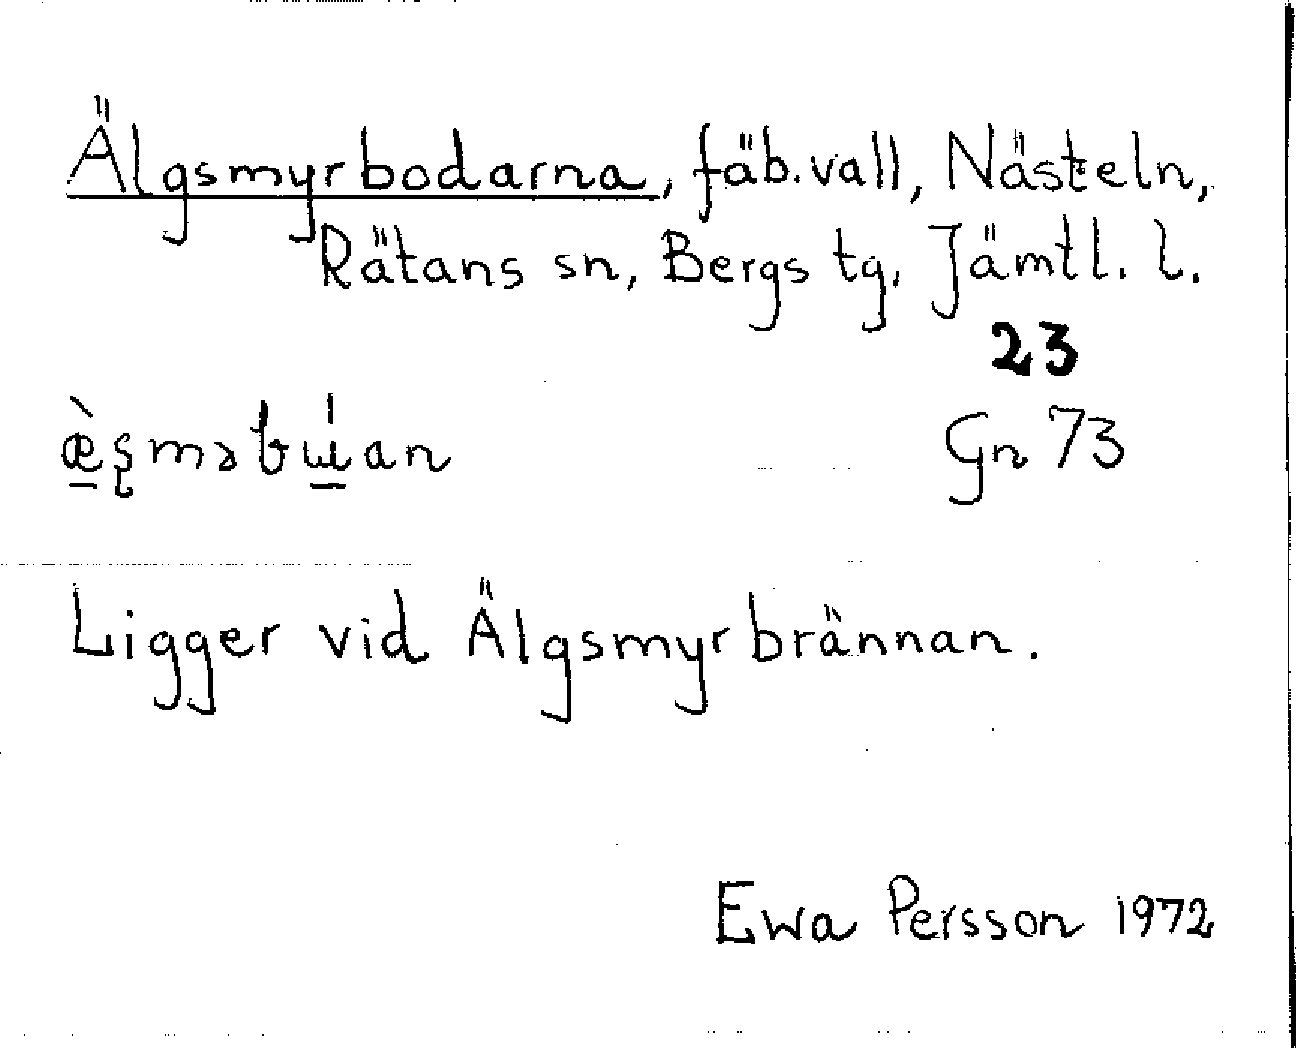 Älgsmyrbodarna, fäb.vall, Nästeln,
Rätans sn, Bergs tg, Jämtl. l.
23
Gn 73
Ligger vid Älgsmyrbrännan.
Ewa Persson 1972